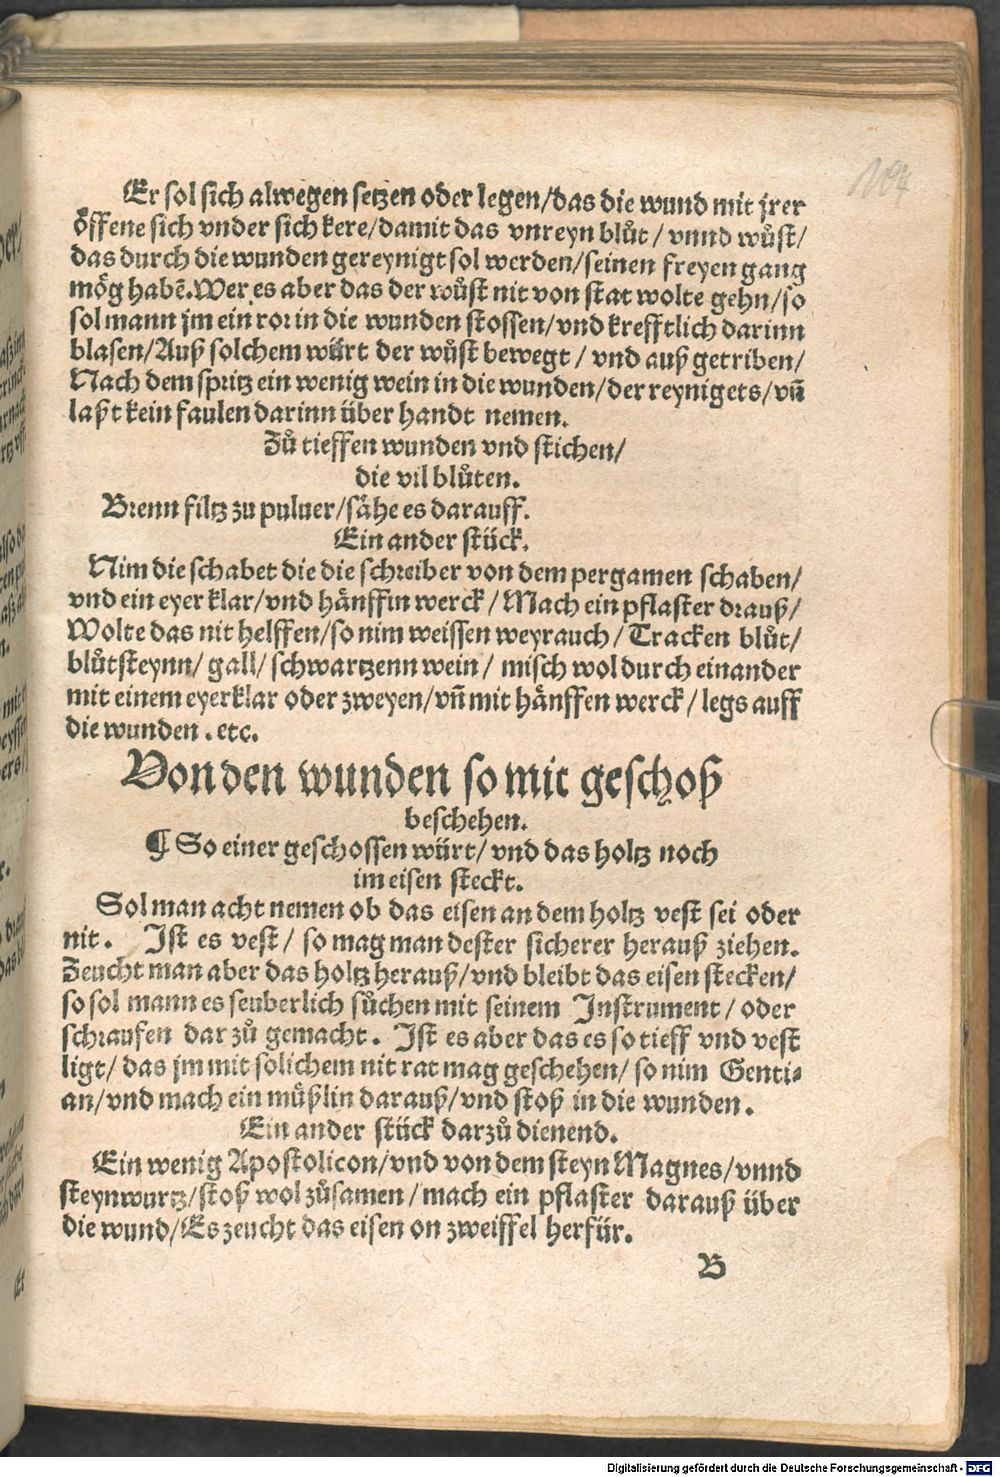 Er sol sich alwegen setzen oder legen/das die wund mit jrer
öffene sich vnder sich kere/damit das vnreyn blůt / vnnd wůst/
das durch die wunden gereynigt sol werden/seinen freyen gang
mög habē.Wer es aber das der wůst nit von stat wolte gehn/so
sol mann jm ein ror in die wunden stossen/vnd krefftlich darinn
blasen/Auß solchem würt der wůst bewegt / vnd auß getriben/
Nach dem spritz ein wenig wein in die wunden/der reynigets/vñ
laßt kein faulen darinn über handt nemen.
Zů tieffen wunden vnd stichen/
die vil blůten.
Brenn filtz zu puluer/sähe es darauff.
Ein ander stück.
Nim die schabet die die schreiber von dem pergamen schaben/
vnd ein eyer klar/vnd hänffin werck / Mach ein pflaster drauß/
Wolte das nit helffen/so nim weissen weyrauch / Tracken blůt/
blůtsteynn/ gall/ schwartzenn wein / misch wol durch einander
mit einem eyerklar oder zweyen/vñ mit hänffen werck / legs auff
die wunden . etc.
Von den wunden so mit geschoß
beschehen.
¶ So einer geschossen würt/ vnd das holtz noch
im eisen steckt.
Sol man acht nemen ob das eisen an dem holtz vest sei oder
nit . Ist es vest / so mag man dester sicherer herauß ziehen.
Zeucht man aber das holtz herauß/vnd bleibt das eisen stecken/
so sol mann es seuberlich sůchen mit seinem Instrument / oder
schraufen dar zů gemacht . Ist es aber das es so tieff vnd vest
ligt/ das jm mit solichem nit rat mag geschehen/ so nim Genti⸗
an/vnd mach ein müßlin darauß/vnd stoß in die wunden .
Ein ander stück darzů dienend.
Ein wenig Apostolicon/vnd von dem steyn Magnes/vnnd
steynwurtz/stoß wol zůsamen / mach ein pflaster darauß über
die wund/Es zeucht das eisen on zweiffel herfür.
B
Digitalisierung gefördert durch die Deutsche Forschungsgemeinschaft - DFG